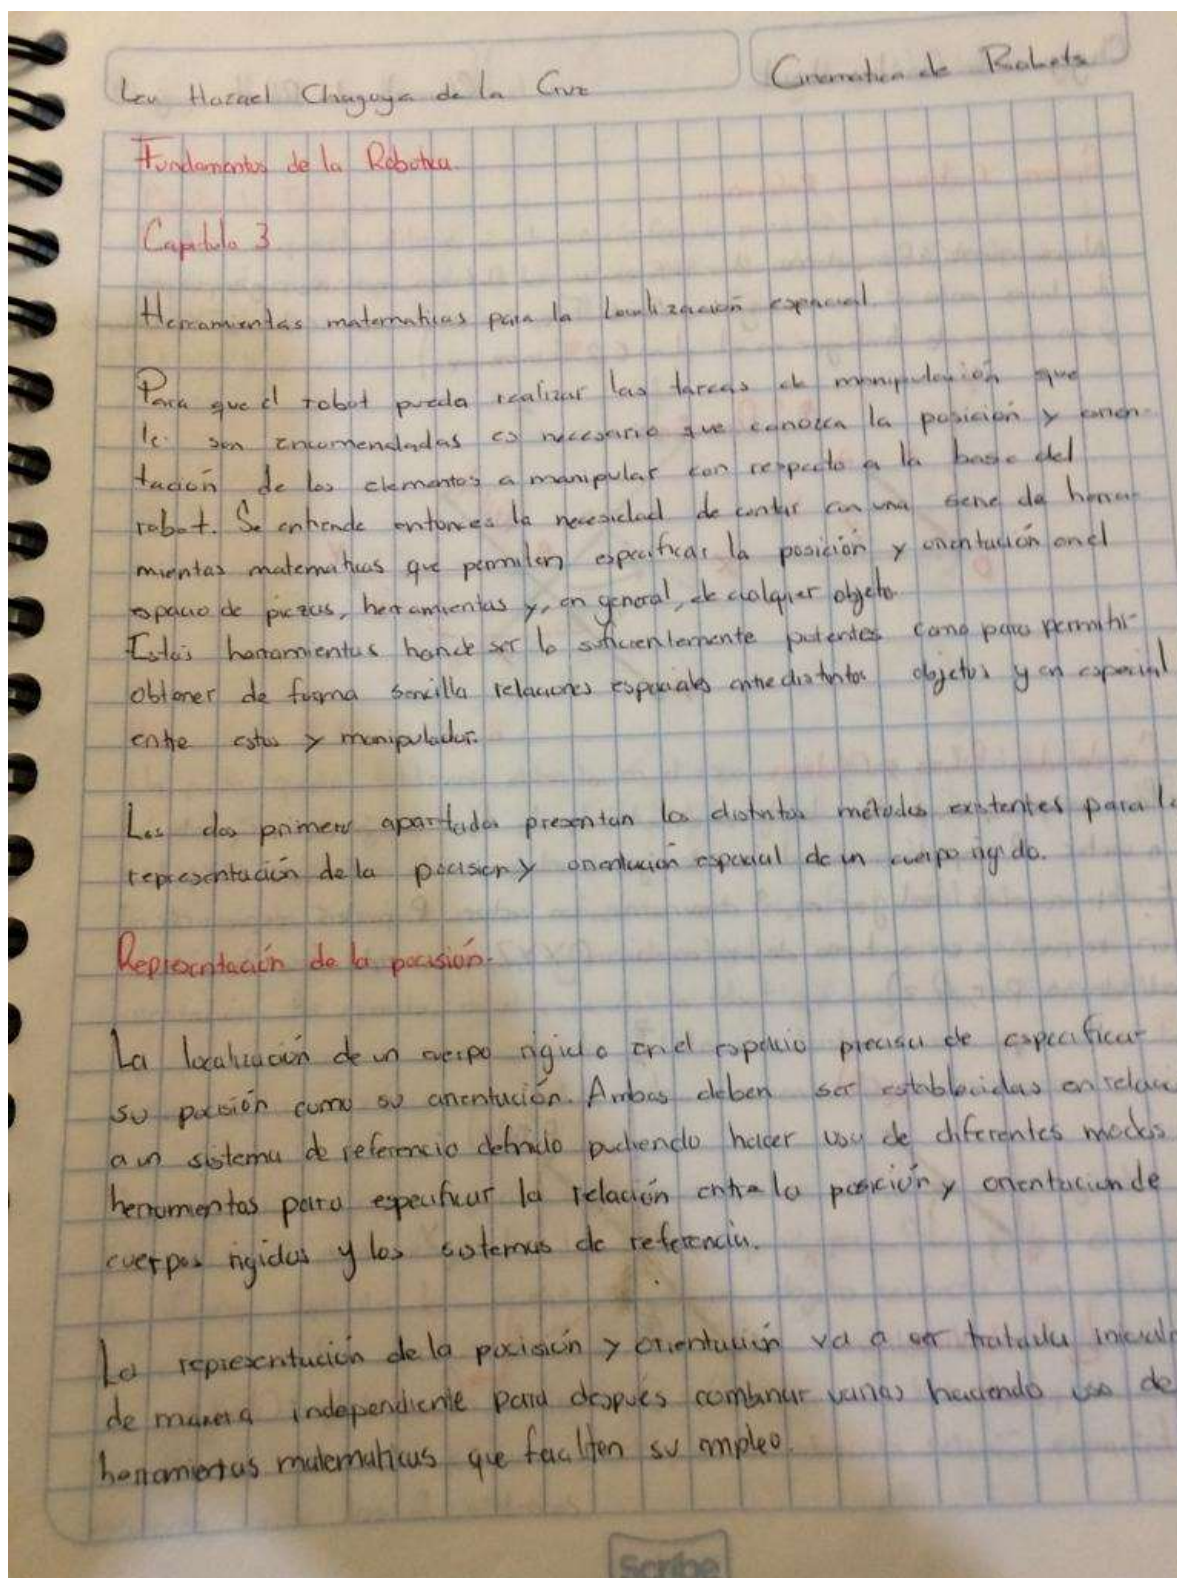 Lev Hazael Chagoya de la Cruz
Cinematica de Robots
Fundamentos de la Robotica.
Capitulo 3
Herramientas matematicas para la Localización espacial.
Para que el robot pueda realizar las tareas de manipulación que
le son encomendadas es necesario que conozca la posición y orien-
tación de los elementos a manipular con respecto a la base del
robot. Se entiende entonces la necesidad de contar con una serie de herra-
mientas matematicas que permiten especificar la posición y orientación en el
espacio de piezas, herramientas y, en general, de cualquier objeto.
Estas herramientas han de ser lo suficientemente potentes como para permitir
obtener de forma sencilla relaciones espaciales entre distintos objetos y en especial
entre estos y manipulador.
Los dos primeros apartados presentan los distintos métodos existentes para la
representación de la pocision y orientación espacial de un cuerpo rigido.
Representación de la pocisión.
La localización de un cuerpo rigido en el espacio precisa de especificar
su pocisión como su orientación. Ambas deben ser establecidas en relaci
a un sistema de referencia definido pudiendo hacer uso de diferentes modos
herramientas para especificar la relación entre la posición y orientacion de
cuerpos rigidos y los sistemas de referencia.
La representación de la pocisión y orientación va a ser tratada inicialm
de manera independiente para después combinar varias haciendo uso de
herramientas matematicas que faciliten su empleo.
Scribe